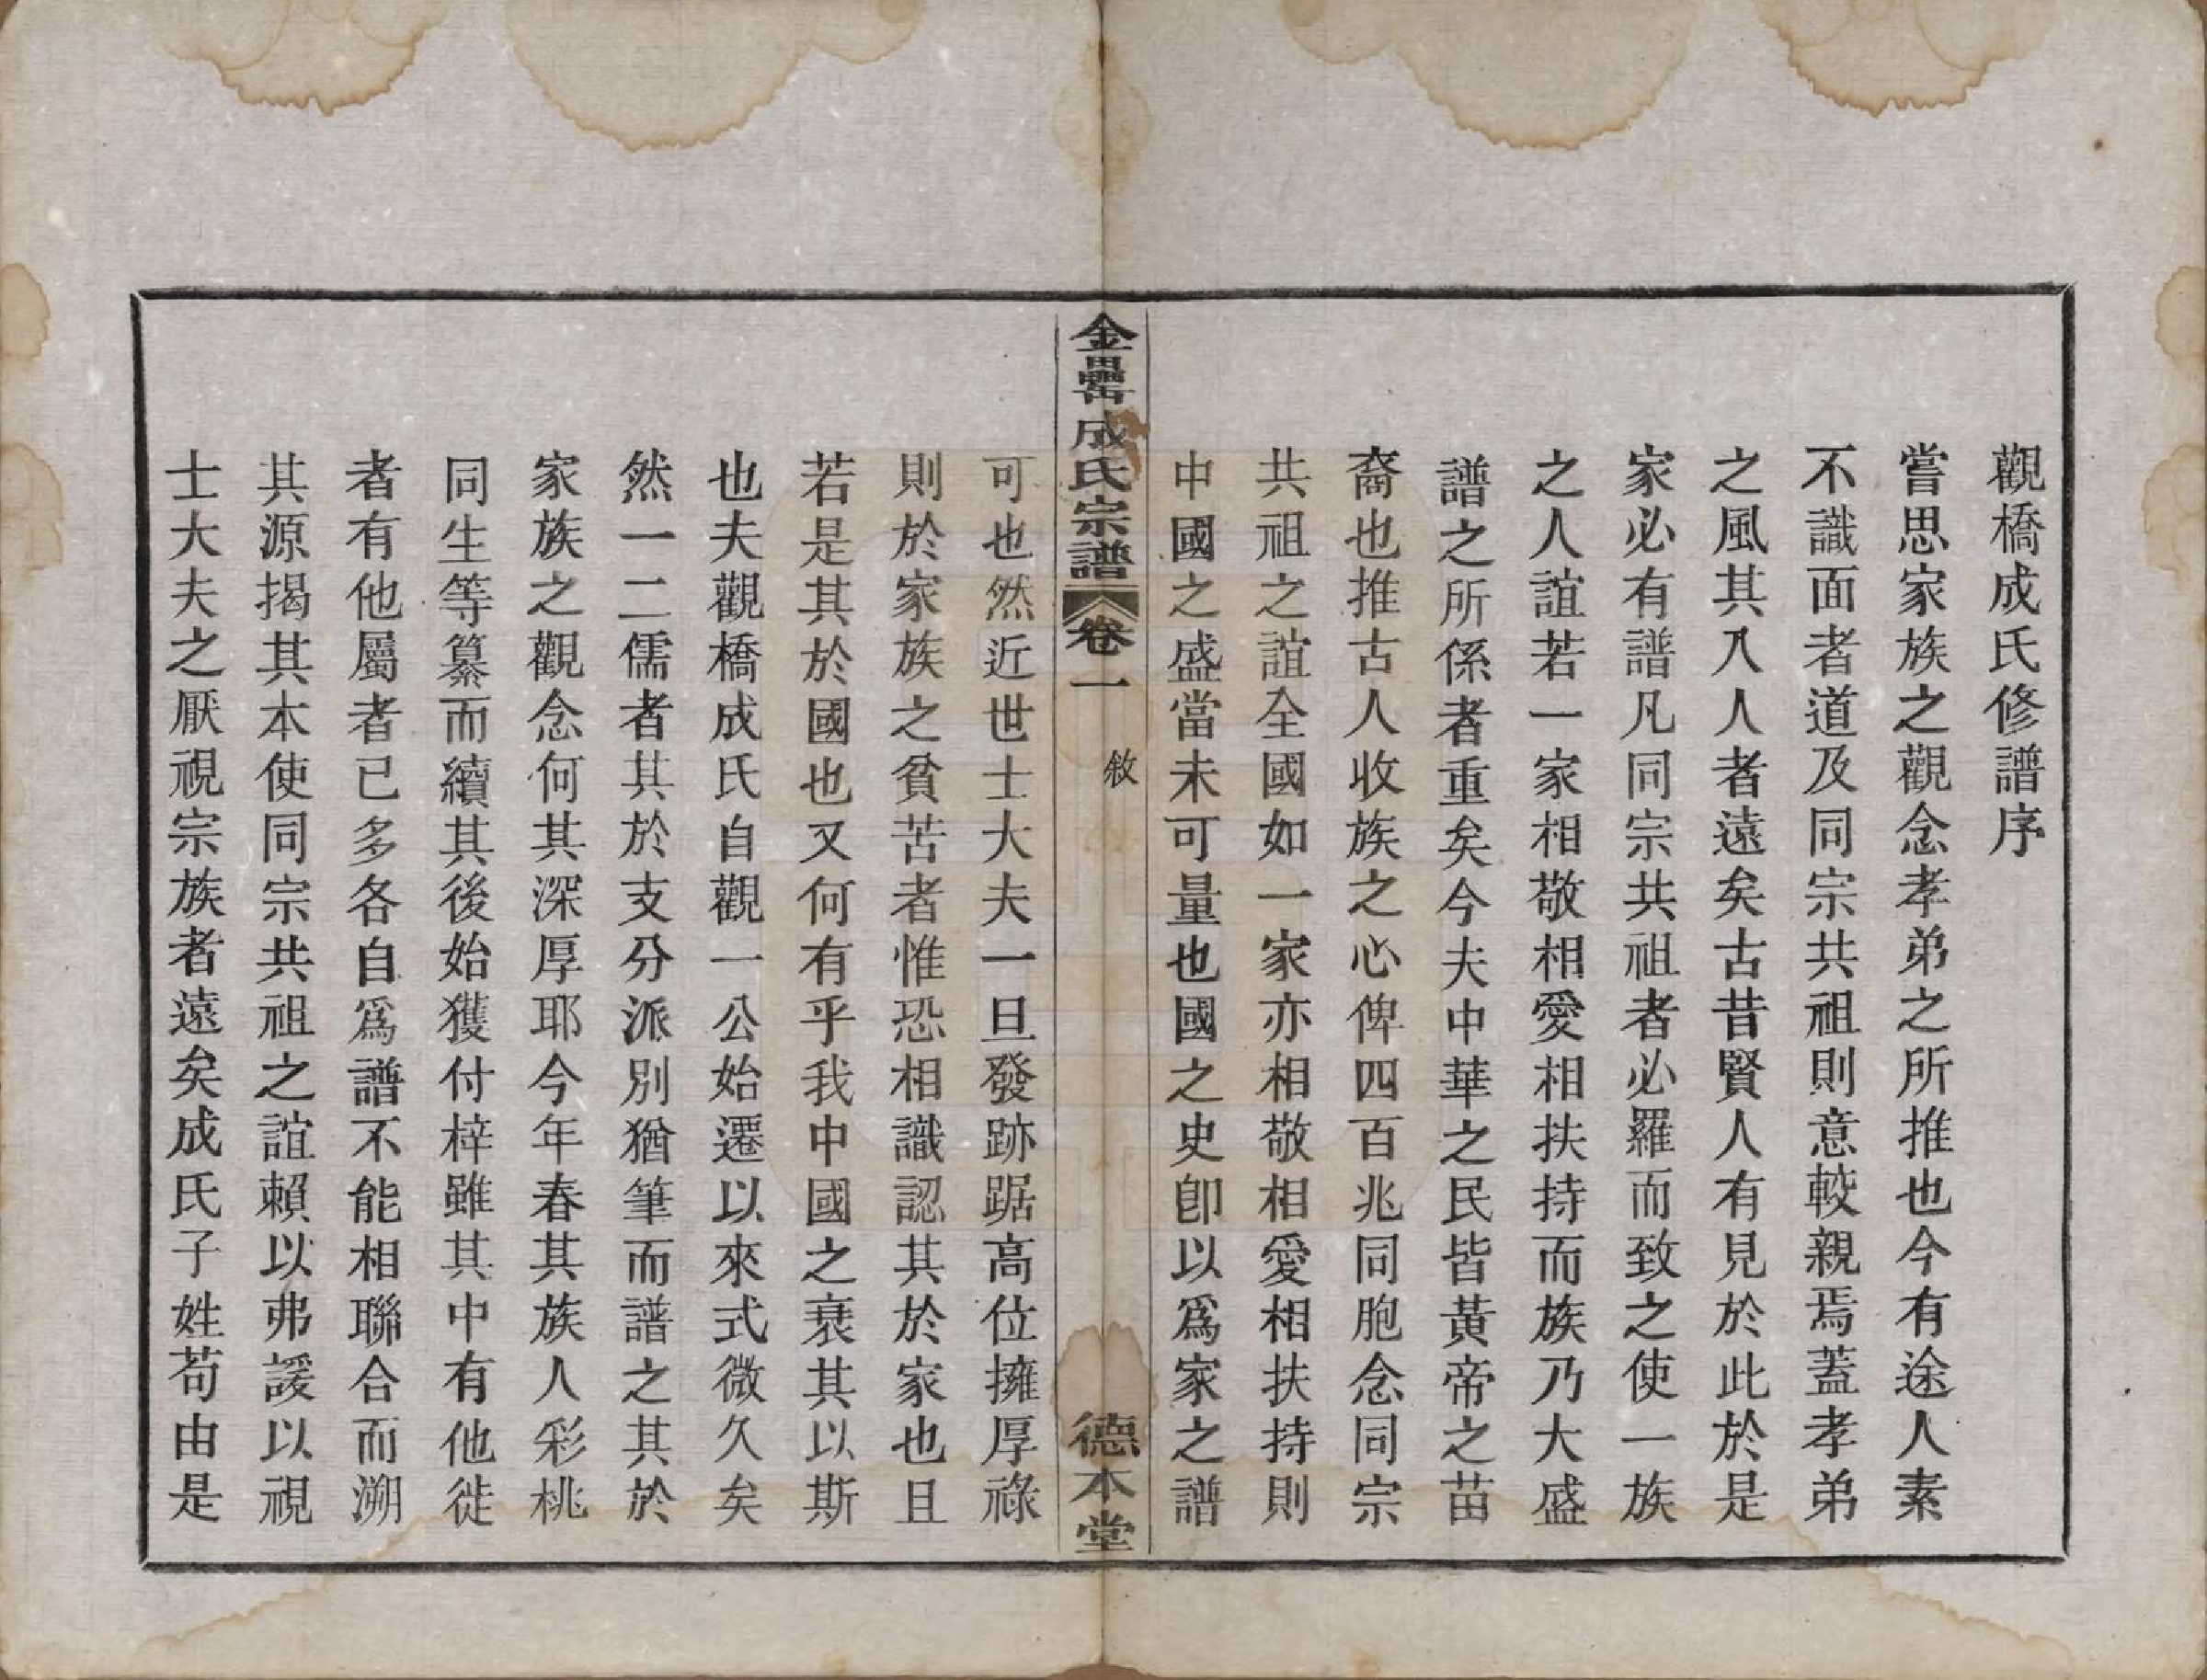 觀橋成氏修譜序
嘗思家族之觀念孝弟之所推也今有途人素
不識面者道及同宗共祖則意較親焉蓋孝弟
之風其入人者遠矣古昔賢人有見於此於是
家必有譜凡同宗共祖者必羅而致之使一族
之人誼若一家相敬相愛相扶持而族乃大盛
譜之所係者重矣今夫中華之民皆黃帝之苗
裔也推古人收族之心俾四百兆同胞念同宗
共祖之誼全國如一家亦相敬相愛相扶持則
中國之盛當未可量也國之史卽以爲家之譜
金罍成氏宗譜 卷一 敘 德本堂
可也然近世士大夫一旦發跡踞高位擁厚祿
則於家族之貧苦者惟恐相識認其於家也且
若是其於國也又何有乎我中國之衰其以斯
也夫觀橋成氏自觀一公始遷以來式微久矣
然一二儒者其於支分派別猶筆而譜之其於
家族之觀念何其深厚耶今年春其族人彩桃
同生等纂而續其後始獲付梓雖其中有他徙
者有他屬者已多各自爲譜不能相聯合而溯
其源揭其本使同宗共祖之誼賴以弗諼以視
士大夫之厭視宗族者遠矣成氏子姓苟由是